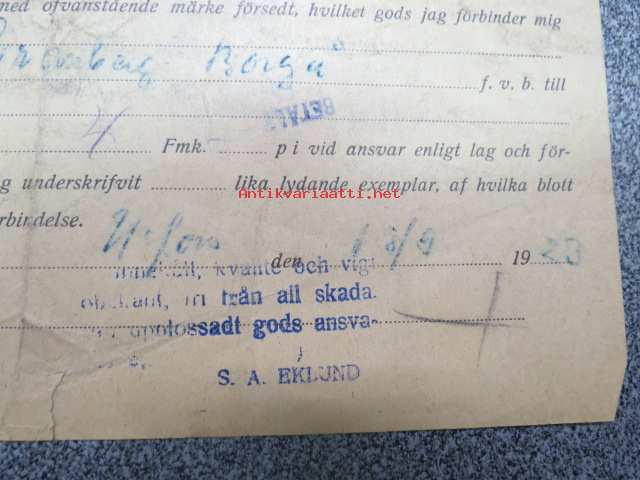 med ofvanstående märke försedt, hvilket gods jag förbinder mig
Borgå
f. v. b. till
BETALT
4 Fmk. p i vid ansvar enligt lag och för-
Antikvariaatti.net
underskrifvit lika lydande exemplar, af hvilka blott
rbindelse.
H:fors den 18/9 1923
innehåll, kvalité och vigt
obekant, fri från all skada.
opolossadt gods ansva-
S. A. EKLUND